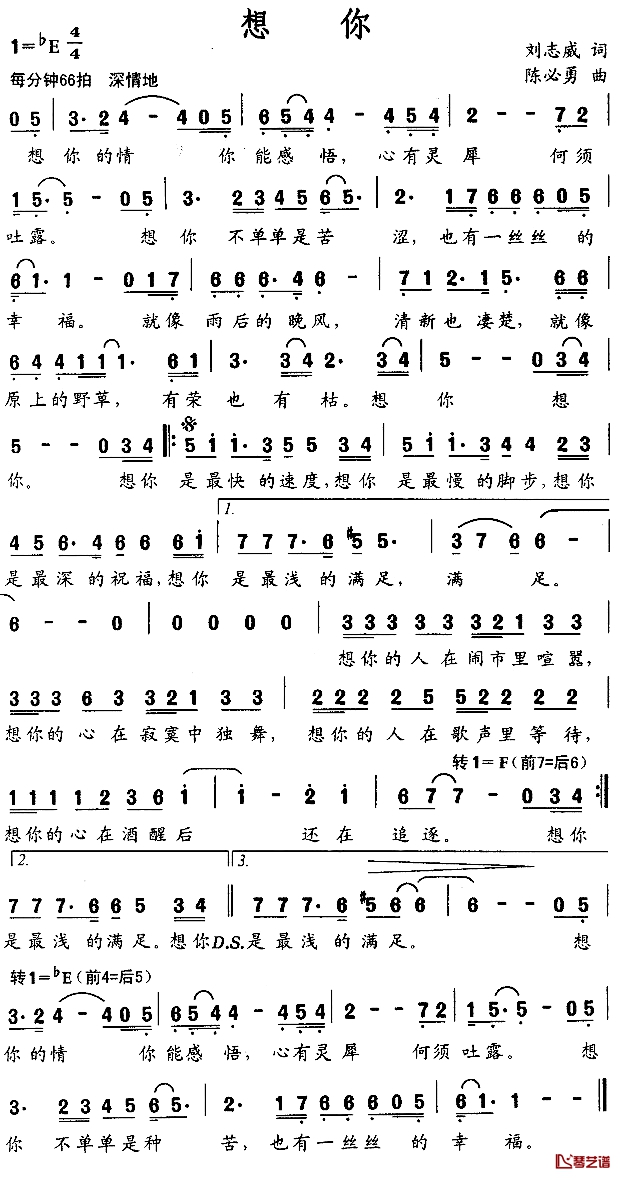 想 你
1=♭E 4/4
刘志威 词
每分钟66拍 深情地
陈必勇 曲
05 3·24-405 6544-454 2--72
想你的情 你能感悟,心有灵犀 何须
15·5·-05 3·234565· 2·176660 5
吐露。 想你 不单单是苦 涩,也有一丝丝的
61·1-017 666·46- 712·15·66
幸福。 就像雨后的晚风, 清新也凄楚,就像
644111·61 3·342·34 5--034
原上的野草, 有荣也有枯。想你 想
5--034 511·35535 511·34423
你。 想你是最快的速度,想你是最慢的脚步,想你
1.
456·46661 777·6#55· 3766-
是最深的祝福,想你是最浅的满足, 满足。
6--0 0000 33333332133
想你的人在闹市里喧嚣,
333633213 3 22222552222
想你的心在寂寞中独舞, 想你的人在歌声里等待,
转1=F(前7=后6)
111112361 1-21 677-034
想你的心在酒醒后 还在追逐。 想你
2. 3.
777·66534 777·6#566 6-05
是最浅的满足。想你D.S.是最浅的满足。 想
转1=♭E(前4=后5)
3·24-405 6544-454 2--72 15·5·-05
你的情 你能感悟,心有灵犀 何须吐露。 想
3·234565· 2·17666055 61·1--
你 不单单是种 苦,也有一丝丝的幸福。
琴艺谱